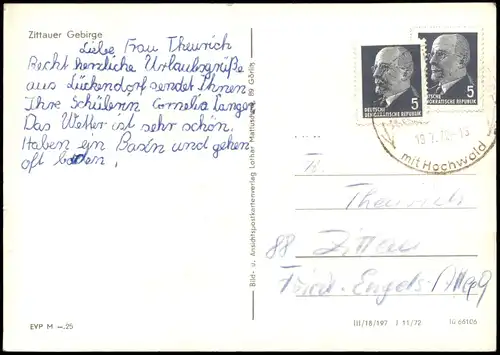 Zittauer Gebirge
Liebe Frau Theurich
Recht herzliche Urlaubsgrüße
aus Lückendorf sendet Ihnen
Ihre Schülerin Cornelia Langer
Das Wetter ist sehr schön.
Haben ein Basin und gehen
oft baden.
EVP M –.25
Bild- u. Ansichtspostkartenverlag Lothar 89 Görlitz
5
DEUTSCHE
DEMOKRATISCHE REPUBLIK
5
DEUTSCHE
DEMOKRATISCHE REPUBLIK
mit Hochwald
Fr.
Theurich
88 Zittau
Friedr.-Engels-
III/18/197 J 11/72 Lü 66106